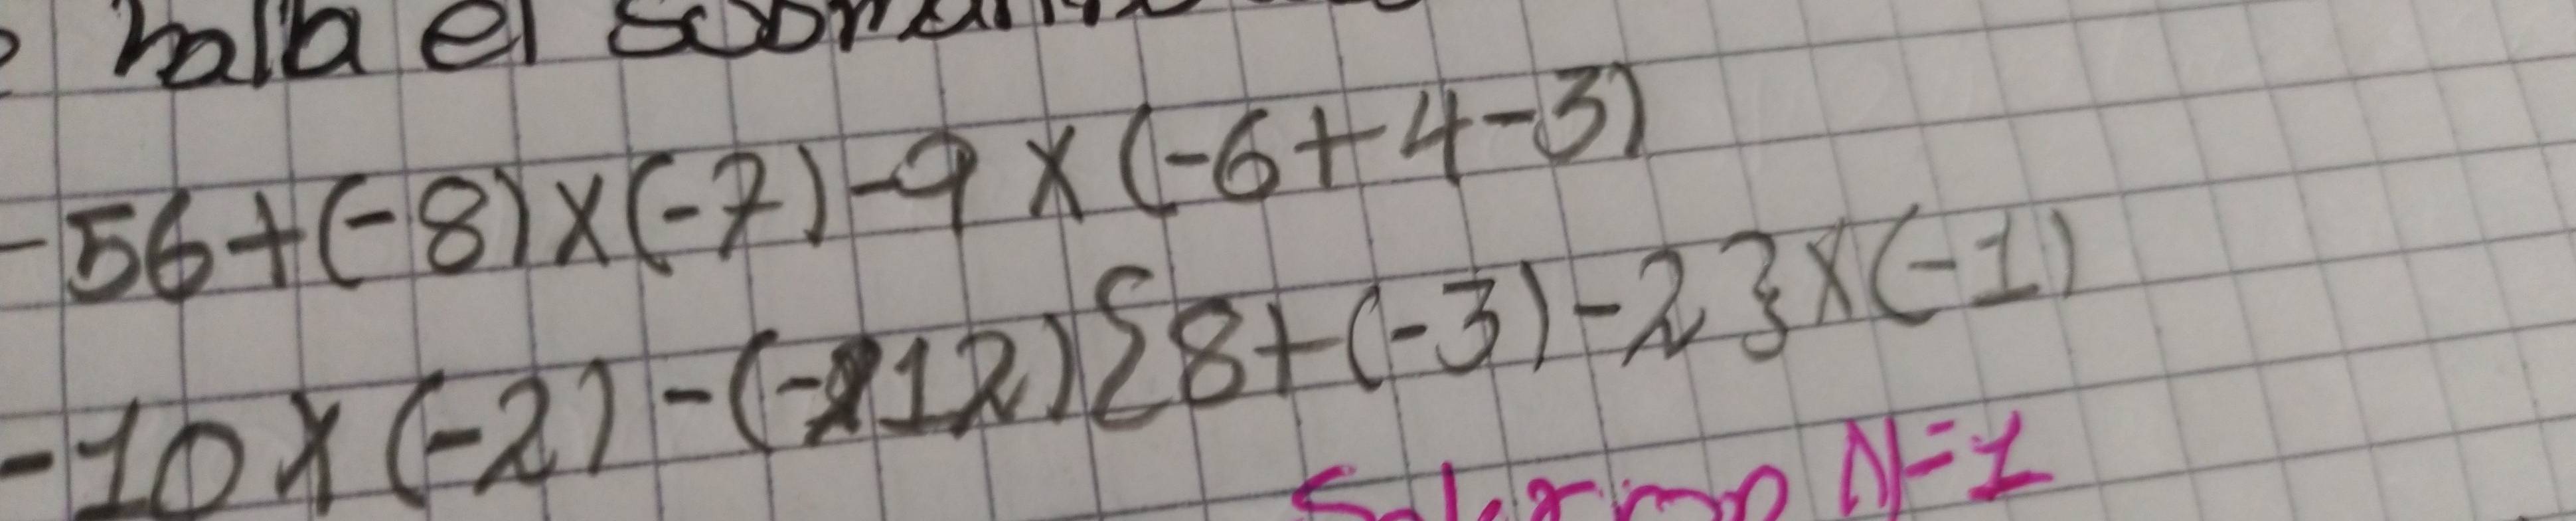 halla el
-56+(-8)x(-7)-9x(-6+4-3)
-10x(-2)-(-12){8+(-3)-2}x(-1)
N=1